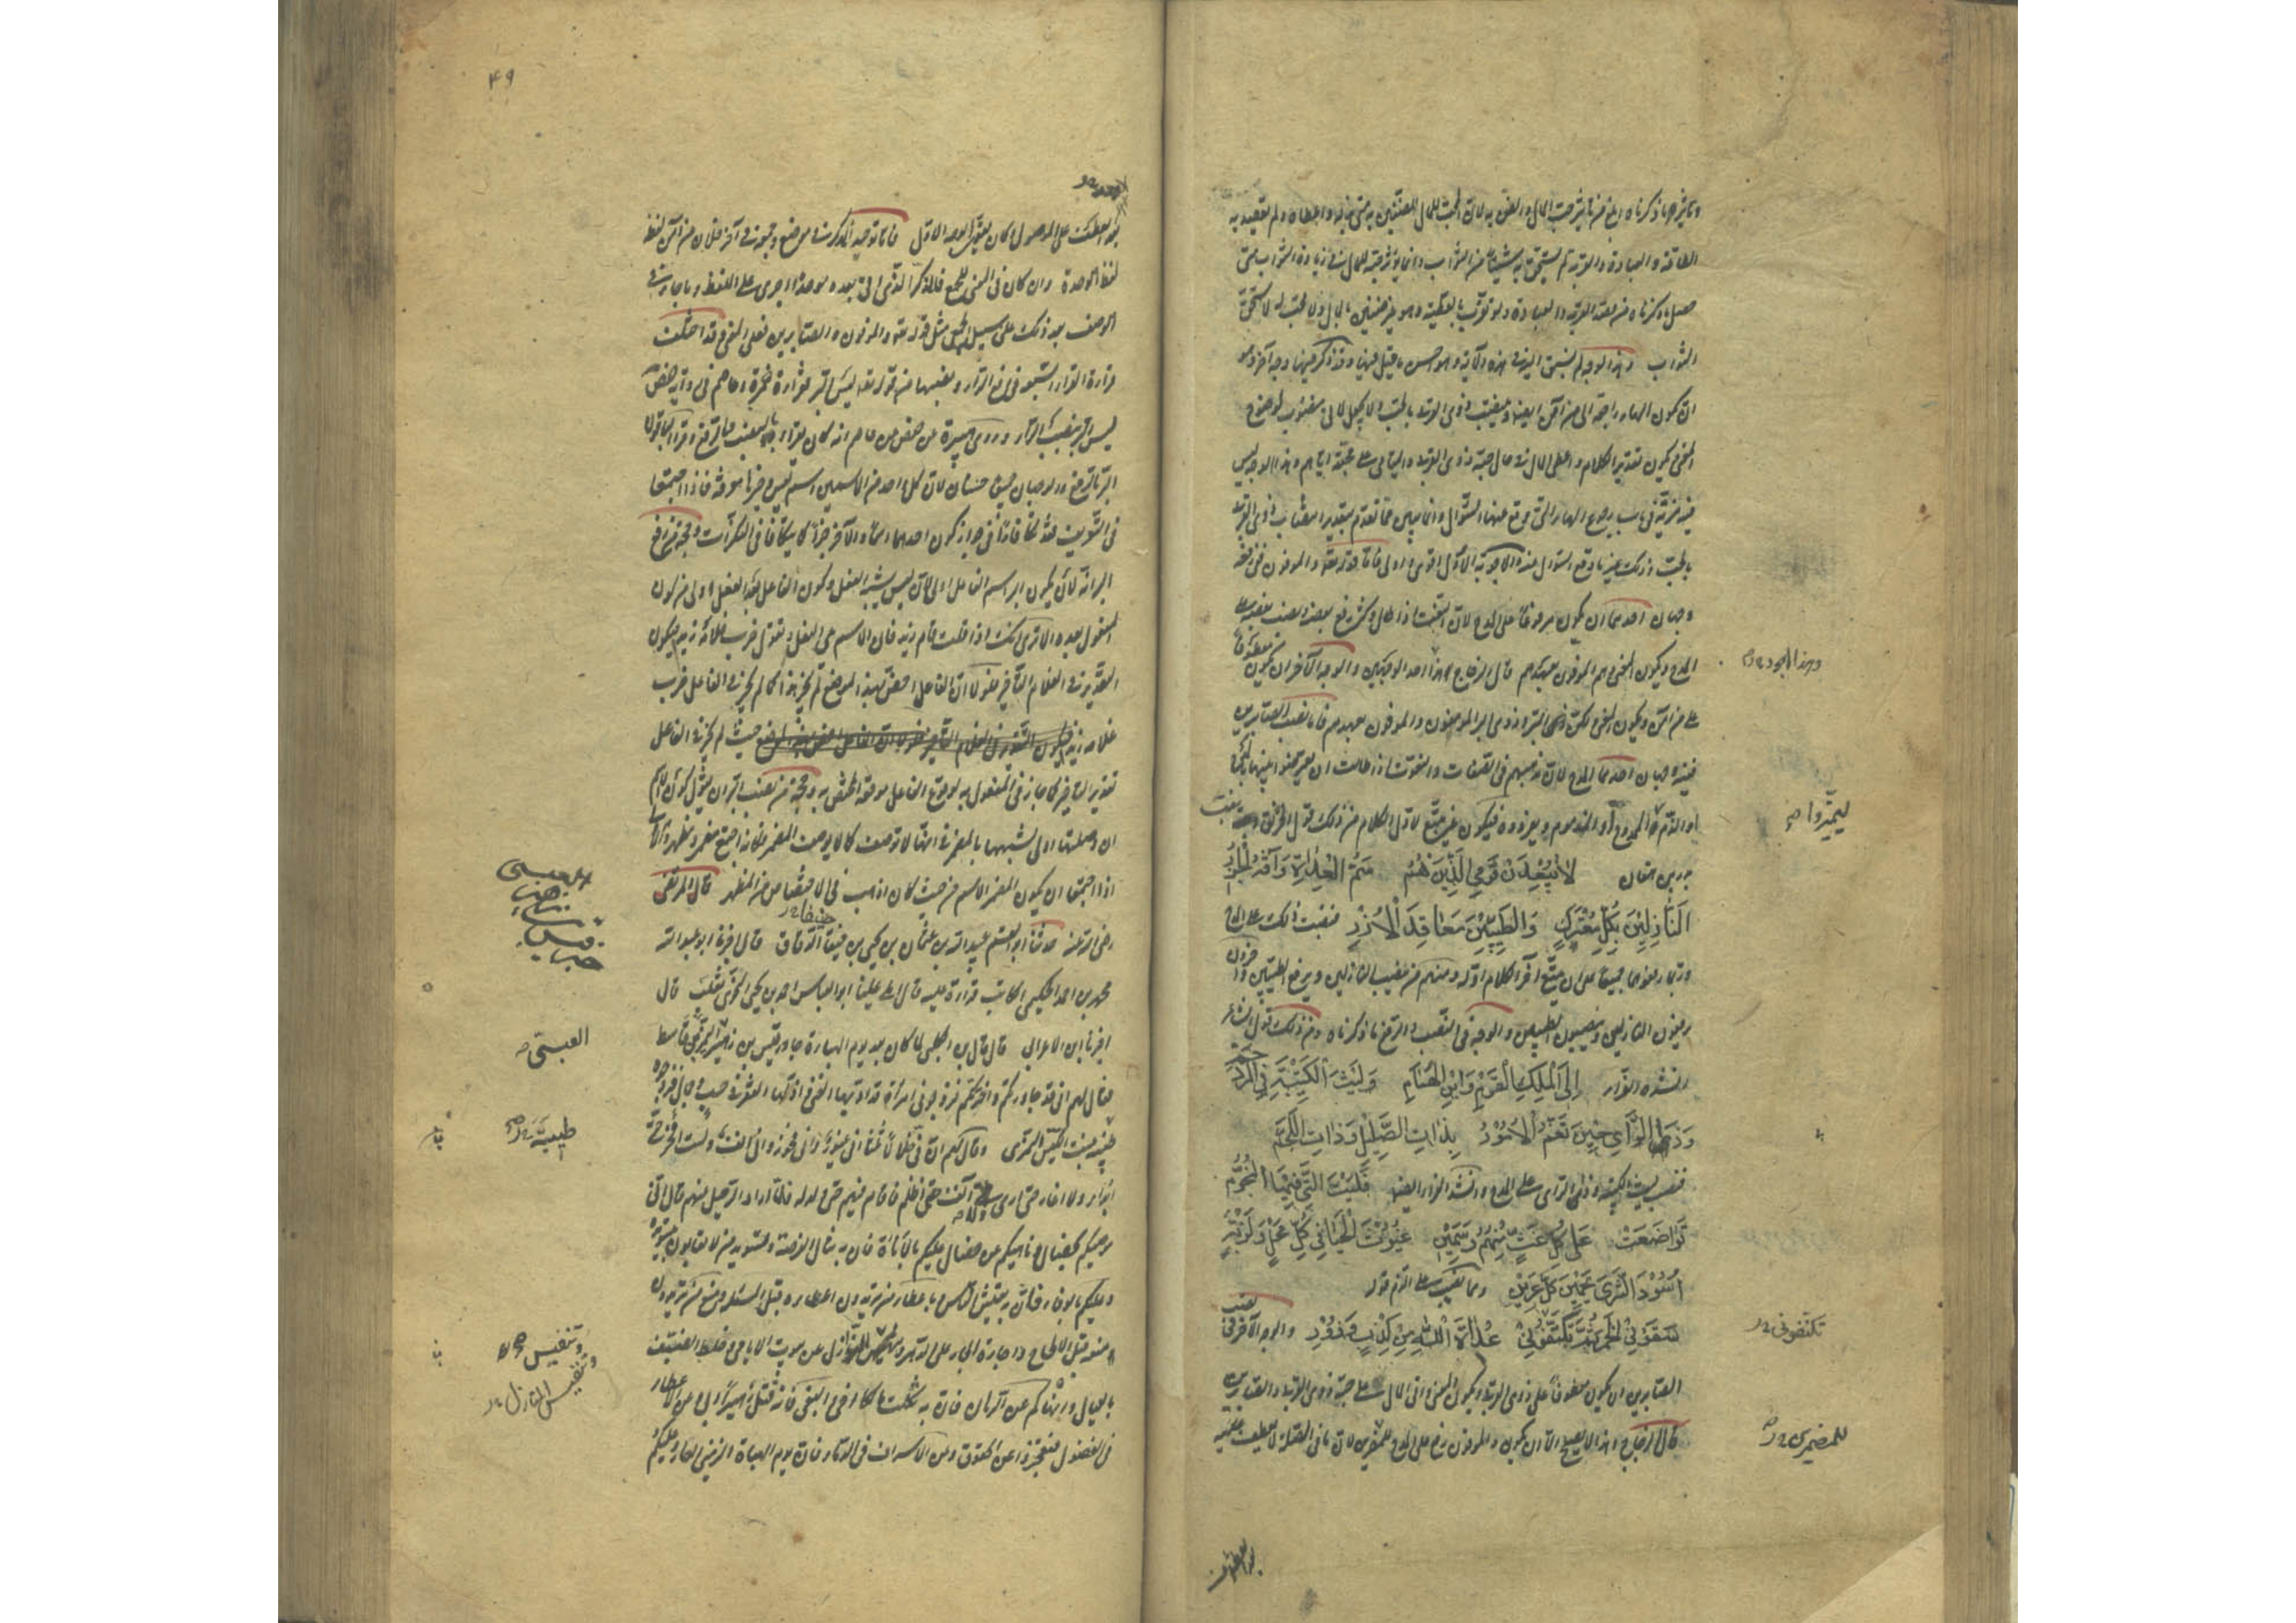 وتأثيره ما ذكرناه ابلغ من تأثير حب المال والضن به لان المحب للمال الضنين به متى بذله واعطاه ولم يقصد به
الطاعة والعبادة والقربة لم يستحق به شيئا من الثواب وانما يؤثر حبه للمال في زيادة الثواب متى
حصل ما ذكرناه من قصد القربة والعبادة ولو تقرب بالعطية وهو غير ضنين بالمال ولا محب له لاستحق
الثواب وهذا الوجه لم نسبق اليه في هذه الآية وهو احسن ما قيل فيها وقد ذكر فيها وجه آخر وهو
ان تكون الهاء راجعة الى من آمن ايضا وينتصب ذوى القربى بالحب ولا يجعل لآتى منصوب لوضوح
المعنى فيكون تقدير الكلام واعطى المال في حال حبه ذوى القربى واليتامى على محبته اياهم وهذا الوجه ليس
فيه مزية في باب رجوع الهاء التي وقع عنها السؤال وانما يبين مما تقدم بتقدير انتصاب ذوى القربى
بالحب وذلك غير ما وقع السؤال عنه والاجوبة الاول اقوى واولى فاما قوله تعالى والموفون ففي رفعه
وجهان احدهما ان يكون مرفوعا على المدح لان النعت اذا طال وكثر رفع بعضه ونصب بعضه على
المدح ويكون المعنى وهم الموفون بعهدهم قال الزجاج وهذا احد الوجهين والوجه الآخر ان يكون معطوفا
وهذا اجود
على من آمن ويكون المعنى ولكن ذا البر وذوى البر المؤمنون والموفون بعهدهم فاما نصب الصابرين
ففيه وجهان احدهما المدح لان مذهبهم في الصفات والنعوت اذا طالت ان يعترضوا بينها بالمدح
او الذم ليميزوا الممدوح أو المذموم ويفردوه فيكون غير متبع لاول الكلام من ذلك قول الخرنق بنت
بدر بن هفان لا يبعدن قومي الذين هم سم العداة وآفة الجزر
النازلين بكل معترك والطيبين معاقد الازر فنصبت ذلك على المدح
وربما رفعوهما جميعا على ان يتبع آخر الكلام اوله ومنهم من ينصب النازلين ويرفع الطيبين وآخرون
يرفعون النازلين وينصبون الطيبين والوجه في النصب والرفع ما ذكرناه ومن ذلك قول الشاعر
انشده الفراء الى الملك القرم وابن الهمام وليث الكتيبة في المزدحم
وذا الرأى حين تغم الامور بذات الصليل وذات اللجم
فنصب ليث الكتيبة وذا الرأى على المدح وانشد الفراء ايضا فليت التي فيها النجوم
تواضعت على كل غث منهم وسمين غيوث الحيا في كل محل ولزبة
اسود الثرى يحمين كل عرين ومما نصب على الذم قوله
سقوني الخمر ثم تكنفوني عداة الله من كذب وزور والوجه الآخر في نصب
تكنفوني
الصابرين ان يكون معطوفا على ذوى القربى ويكون المعنى وآتى المال على حبه ذوى القربى والصابرين
قال الزجاج وهذا لا يصلح الا ان يكون والموفون رفع على المدح للمضمرين لان ما في الصلة لا يعطف عليه
للمضمرين
بعد العطف
٤٩
بعد العطف على الموصول وكان يقوى الوجه الاول فاما توحيد الذكر في موضع وجمعه في آخر فلان من آمن لفظه
لفظ الوحدة وان كان في المعنى للجمع فالذكر الذي اتى بعده موحدا اجرى على اللفظ وما جاء من
الوصف بعد ذلك على سبيل الجمع مثل قوله تعالى والموفون والصابرين فعلى المعنى وقد اختلفت
قراءة القراء السبعة في رفع الراء ونصبها من قوله تعالى ليس البر فقرأ حمزة وعاصم في رواية حفص
ليس البر بنصب الراء وروى هبيرة عن حفص عن عاصم انه كان يقرأ بالنصب والرفع وقرأ الباقون
البر بالرفع والوجهان جميعا حسنان لان كل واحد من الاسمين اسم ليس وخبرها معرفة فاذا اجتمعا
في التعريف تكافآ في جواز كون احدهما اسما والآخر خبرا كما تتكافأ النكرات وحجة من رفع
البر انه لأن يكون البر اسم الفاعل اولى لان ليس يشبه الفعل وكون الفاعل بعد الفعل اولى من كون
المفعول بعده الا ترى انك اذا قلت قام زيد فان الاسم يلي الفعل وتقول ضرب غلامه زيد فيكون
التقدير في الغلام التأخير فلولا ان الفاعل اخص بهذا الموضع لم يجز هذا كما لم يجز في الفاعل ضرب
غلامه زيدا حيث لم يجز في الفاعل
تقدير التأخير كما جاز في المفعول به لوقوع الفاعل موقعه المختص به وحجة من نصب البر ان يقول كون الاسم
ان وصلتها اولى لشبهها بالمضمر في انها لا توصف كما لا يوصف المضمر فكأنه اجتمع مضمر ومظهر والاولى
اذا اجتمعا ان يكون المضمر الاسم من حيث كان اذهب في الاختصاص من المظهر قال المرتضى
رضي الله عنه حدثنا ابو القاسم عبيد الله بن عثمان بن يحيى بن جنيقا الدقاق قال اخبرنا ابو عبد الله
محمد بن احمد الحكيمي الكاتب قراءة عليه قال املى علينا ابو العباس احمد بن يحيى النحوي ثعلب قال
اخبرنا ابن الاعرابي قال قال ابن الكلبي لما كان بعد يوم الهباءة جاور قيس بن زهير النمر بن قاسط
العبسي
فقال لهم اني قد جاورتكم واخترتكم فزوجوني امرأة قد ادبها الغنى واذلها الفقر في حسب وجمال فزوجوه
ظبية بنت الكيس النمرى وقال لهم ان في خلالا ثلثا اني غيور واني فخور واني آنف ولست افخر حتى
طيبة
ابتلى ولا اغار حتى ارى ولا آنف حتى اظلم فاقام فيهم حتى ولد له فلما اراد الرحيل عنهم قال اني
موصيكم بخصال وناهيكم عن خصال عليكم بالاناة فان بها تنال الفرصة وتسويد من لا تعابون بتسويده
وعليكم بالوفاء فان به يعيش الناس وباعطاء من تريدون اعطاءه قبل المسئلة ومنع من تريدون
منعه قبل الالحاح واجارة الجار على الدهر وتنفيس المنازل عن بيوت الايامى وخلط الضيف
وتنفيس
وتنفيس المنازل
بالعيال وانهاكم عن الرهان فان به ثكلت مالكا اخي والبغي فانه قتل زهيرا ابي وعن الاعطاء
في الفضول فتعجزوا عن الحقوق وعن الاسراف في الدماء فان يوم الهباءة الزمني العار وعليكم